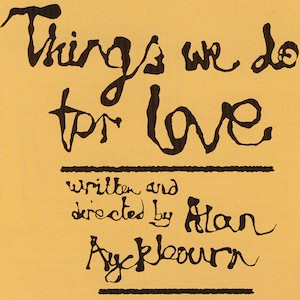 Things we do
for love
written and
directed by Alan
Ayckbourn